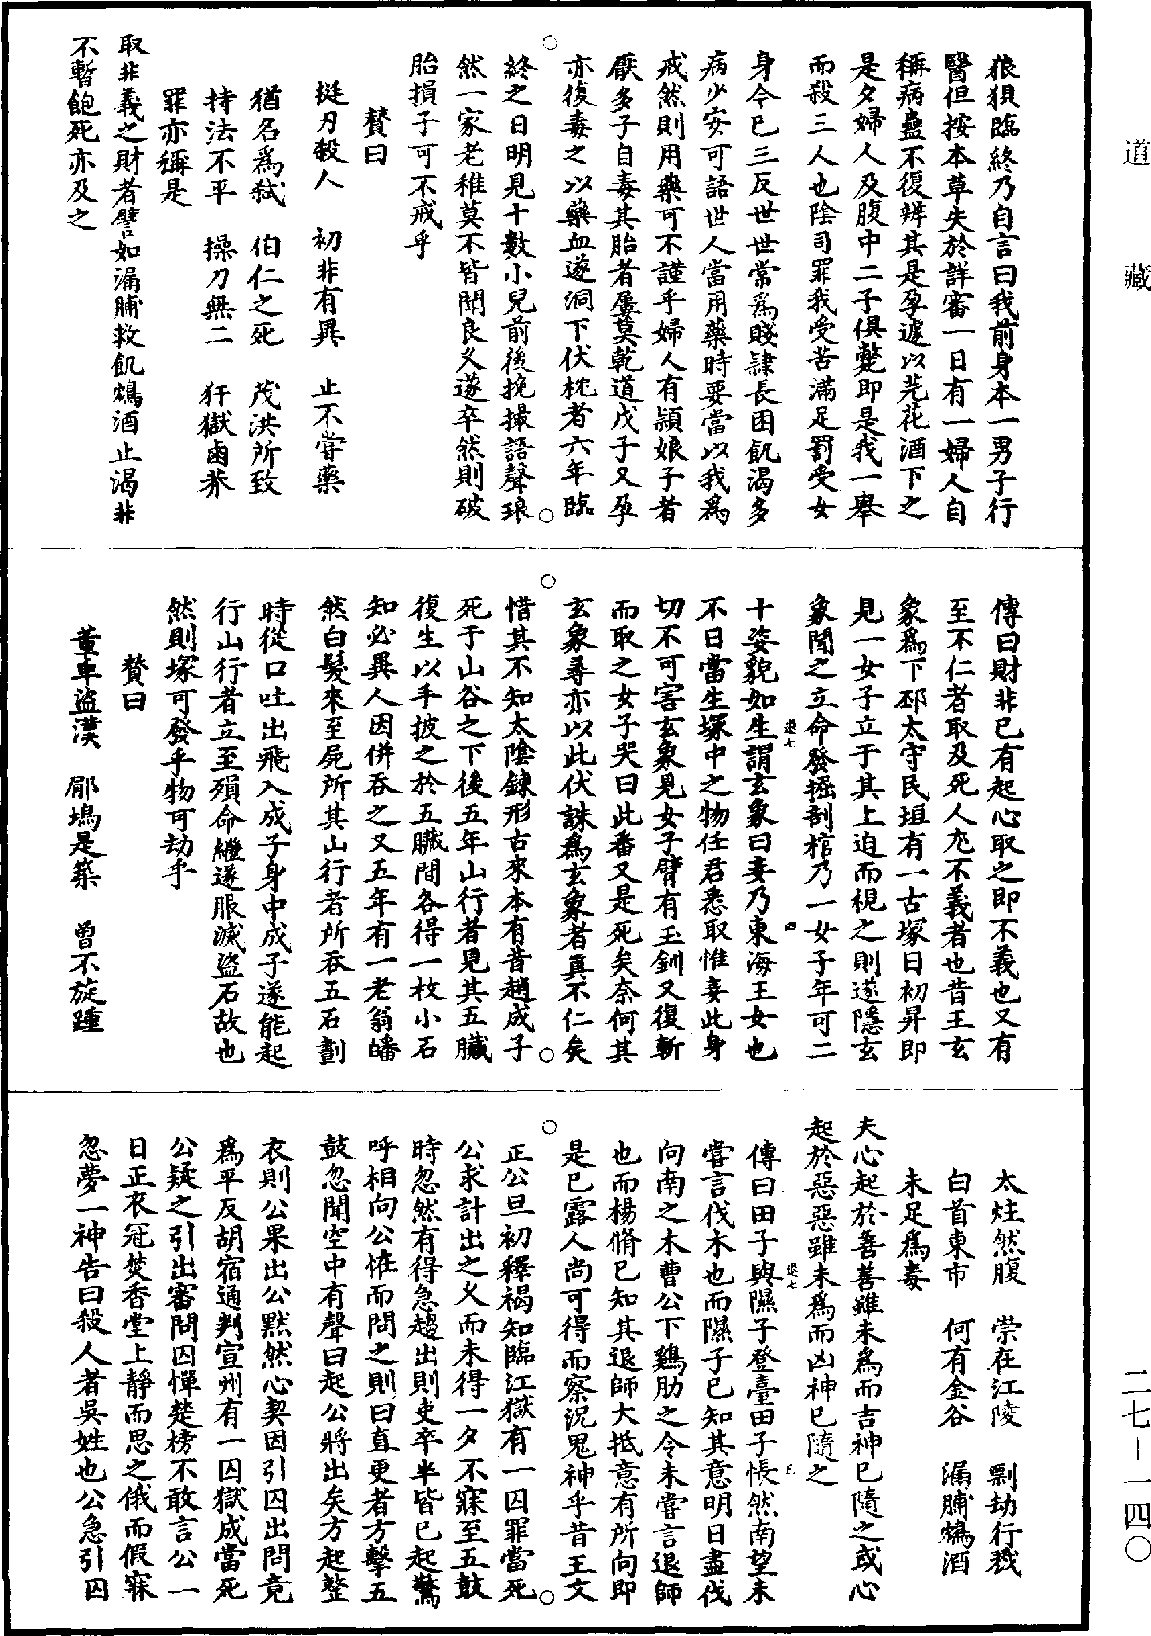 道藏
二七—一四〇
狼狽臨終乃自言曰我前身本一男子行
醫但按本草失於詳審一日有一婦人自
稱病蠱不復辨其是孕遽以芫花酒下之
是夕婦人及腹中二子俱斃即是我一舉
而殺三人也陰司罪我受苦滿足罰受女
身今已三反世世常爲賤隸長困飢渴多
病少安可語世人當用藥時要當以我爲
戒然則用藥可不謹乎婦人有潁娘子者
厭多子自毒其胎者屢莫乾道戊子又孕
亦復毒之以藥血遂洞下伏枕者六年臨
終之日明見十數小兒前後挽撮語聲琅
然一家老稚莫不皆聞良久遂卒然則破
胎損子可不戒乎
贊曰
挺刃殺人 初非有異 止不嘗藥
猶名爲弑 伯仁之死 茂洪所致
持法不平 操刀無二 犴獄鹵莽
罪亦稱是
取非義之財者譬如漏脯救飢鴆酒止渴非
不暫飽死亦及之
傳曰財非已有起心取之即不義也又有
至不仁者取及死人尤不義者也昔王玄
象爲下邳太守民垣有一古塚日初昇即
見一女子立于其上迫而視之則遂隱玄
象聞之立命發掘剖棺乃一女子年可二
十姿貌如生謂玄象曰妾乃東海王女也
不日當生塚中之物任君悉取惟妾此身
切不可害玄象見女子臂有玉釧又復斬
而取之女子哭曰此番又是死矣奈何其
玄象尋亦以此伏誅爲玄象者真不仁矣
惜其不知太陰鍊形古來本有昔趙成子
死于山谷之下後五年山行者見其五臟
復生以手披之於五臟間各得一枚小石
知必異人因併吞之又五年有一老翁皤
然白髮來至屍所其山行者所吞五石劃
時從口吐出飛入成子身中成子遂能起
行山行者立至殞命繼遂服滅盜石故也
然則塚可發乎物可劫乎
贊曰
董卓盜漢 郿塢是築 曾不旋踵
太炷然腹 崇在江陵 剽劫行戮
白首東市 何有金谷 漏脯鴆酒
未足爲毒
夫心起於善善雖未爲而吉神已隨之或心
起於惡惡雖未爲而凶神已隨之
傳曰田子與隰子登臺田子悵然南望未
嘗言伐木也而隰子已知其意明日盡伐
向南之木曹公下鷄肋之令未嘗言退師
也而楊脩已知其退師大抵意有所向即
是已露人尚可得而察況鬼神乎昔王文
正公旦初釋褐知臨江獄有一囚罪當死
公求計出之久而未得一夕不寐至五鼓
時忽然有得急趨出則吏卒半皆已起驚
呼相向公恠而問之則曰直更者方擊五
鼓忽聞空中有聲曰起公將出矣方起整
衣則公果出公默然心契因引囚出問竟
爲平反胡宿通判宣州有一囚獄成當死
公疑之引出審問囚憚楚榜不敢言公一
日正衣冠焚香堂上靜而思之俄而假寐
忽夢一神告曰殺人者吳姓也公急引囚